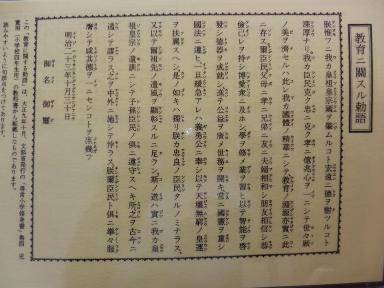 教育ニ關スル勅語
朕惟フニ我カ皇祖皇宗國ヲ肇ムルコト宏遠ニ德ヲ樹ツルコト
深厚ナリ我カ臣民克ク忠ニ克ク孝ニ億兆心ヲ一ニシテ世々厥
ノ美ヲ濟セルハ此レ我カ國體ノ精華ニシテ教育ノ淵源亦實ニ此
ニ存ス爾臣民父母ニ孝ニ兄弟ニ友ニ夫婦相和シ朋友相信シ恭
儉己レヲ持シ博愛衆ニ及ホシ學ヲ修メ業ヲ習ヒ以テ智能ヲ啓
發シ德器ヲ成就シ進テ公益ヲ廣メ世務ヲ開キ常ニ國憲ヲ重シ
國法ニ遵ヒ一旦緩急アレハ義勇公ニ奉シ以テ天壤無窮ノ皇運
ヲ扶翼スヘシ是ノ如キハ獨リ朕カ忠良ノ臣民タルノミナラス
又以テ爾祖先ノ遺風ヲ顯彰スルニ足ラン斯ノ道ハ實ニ我カ皇
祖皇宗ノ遺訓ニシテ子孫臣民ノ俱ニ遵守スヘキ所之ヲ古今ニ
通シテ謬ラス之ヲ中外ニ施シテ悖ラス朕爾臣民ト俱ニ拳々服
膺シテ咸其德ヲ一ニセンコトヲ庶幾フ
明治二十三年十月三十日
御名御璽
この「教育に關する勅語」は、大正九年十月、文部省発行の「尋常小学修身書」巻四 児
童用(小学校四年生)の教科書の巻頭に記載したものであります。
読みやすいように句読点をつけてあります。